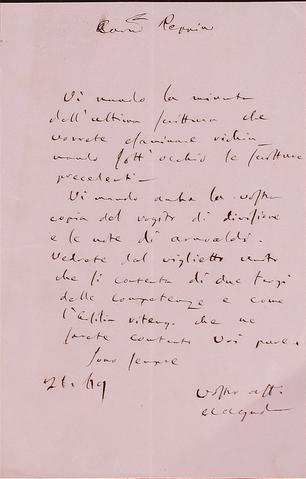 Caro Peppino
Vi mando la minuta
dell'ultima scrittura che
vorrete esaminare richia-
mando sott'occhio le scritture
precedenti—
Vi mando anche la vostra
copia del rogito di divisione
e le note di
Vedrete dal viglietto unito
che si contenta di due terzi
delle competenze e come
l' ritengo che ne
sarete contenti voi pure.
Sono sempre
vostro aff.